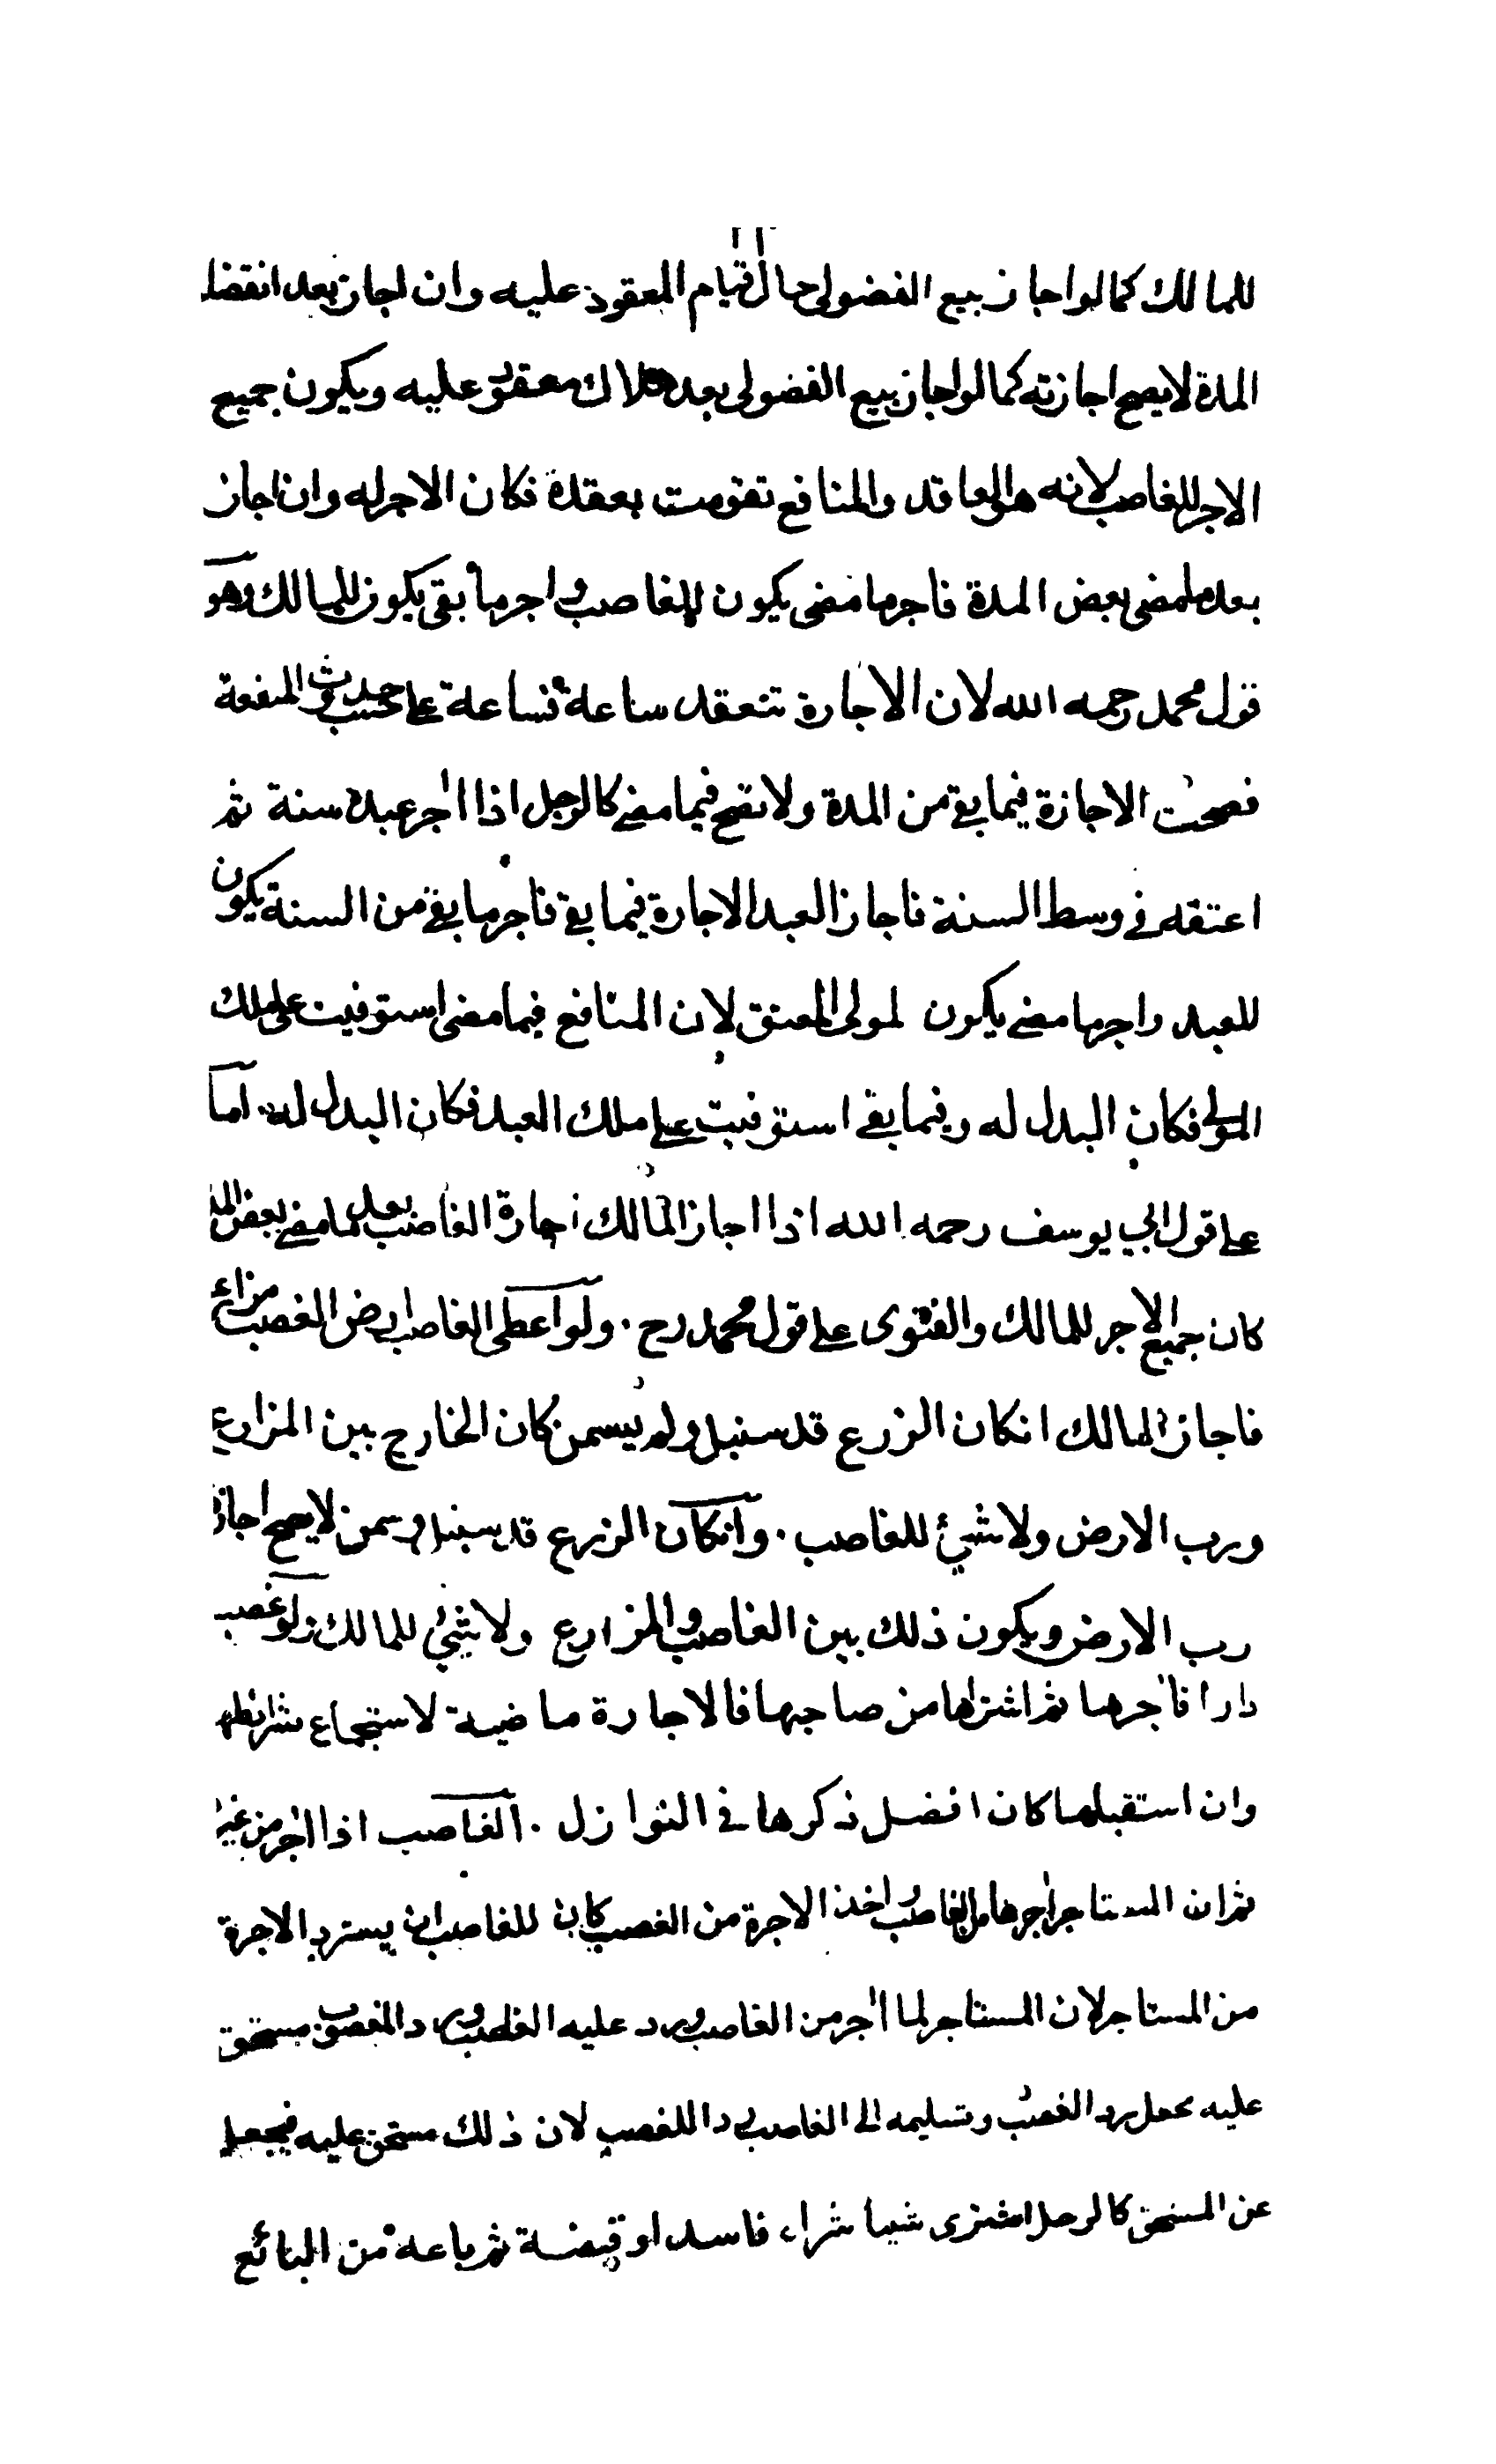 للمالك كما لو اجاز بيع الفضولى حال قيام المعقود عليه وان اجاز بعد انقضا
المدة لا يصح اجازته كما لو اجاز بيع الفضولى بعد هلاك معقود عليه ويكون جميع
الاجر للغاصب لانه هو العاقد والمنافع تقومت بعقده فكان الاجر له وان اجاز
بعد ما مضى بعض المدة فاجر ما مضى يكون للغاصب و اجر ما بقى يكون للمالك وهو
قول محمد رحمه الله لان الاجارة تنعقد ساعة فساعة على حسب حدوث المنفعة
فصحت الاجازة فيما بقي من المدة ولا تصح فيما مضى كالرجل اذا آجر عبده سنة ثم
اعتقه في وسط السنة فاجاز العبد الاجارة فيما بقي فاجر ما بقي من السنة يكون
للعبد واجر ما مضى يكون لمولى المعتق لان المنافع فيما مضى استوفيت على ملك
المولى فكان البدل له وفيما بقي استوفيت على ملك العبد فكان البدل له اما
على قول ابي يوسف رحمه الله اذا اجاز المالك اجارة الغاصب بعد ما مضى بعض المد
كان جميع الاجر للمالك والفتوى على قول محمد رح . ولو اعطى الغاصب ارض الغصب مزارع
فاجاز المالك انكان الزرع قد سنبل ولم يسمن كان الخارج بين المزارع
ورب الارض ولا شئ للغاصب . وانكان الزرع قد سنبل وسمن لا يصح اجاز
رب الارض ويكون ذلك بين الغاصب والمزارع ولا شئ للمالك ولو غصب
دارا فآجرها ثم اشتراها من صاحبها فالاجارة ماضية لاستجماع شرائطها
وان استقبلها كان افضل ذكرها في النوازل . الغاصب اذا آجر من غير
ثم ان المستاجر آجرها من الغاصب و اخذ الاجرة من الغصب كان للغاصب ان يسترد الاجرة
من المستاجر لان المستاجر لما آجر من الغاصب ورد عليه الغاصب ورد المغصوب مستحق
عليه يجعل رد الغصب وتسليمه الى الغاصب ردا للغصب لان ذلك مستحق عليه فيجعل
عن المستحق كالرجل اشترى شيئا شراء فاسد او قبضه ثم باعه من البائع